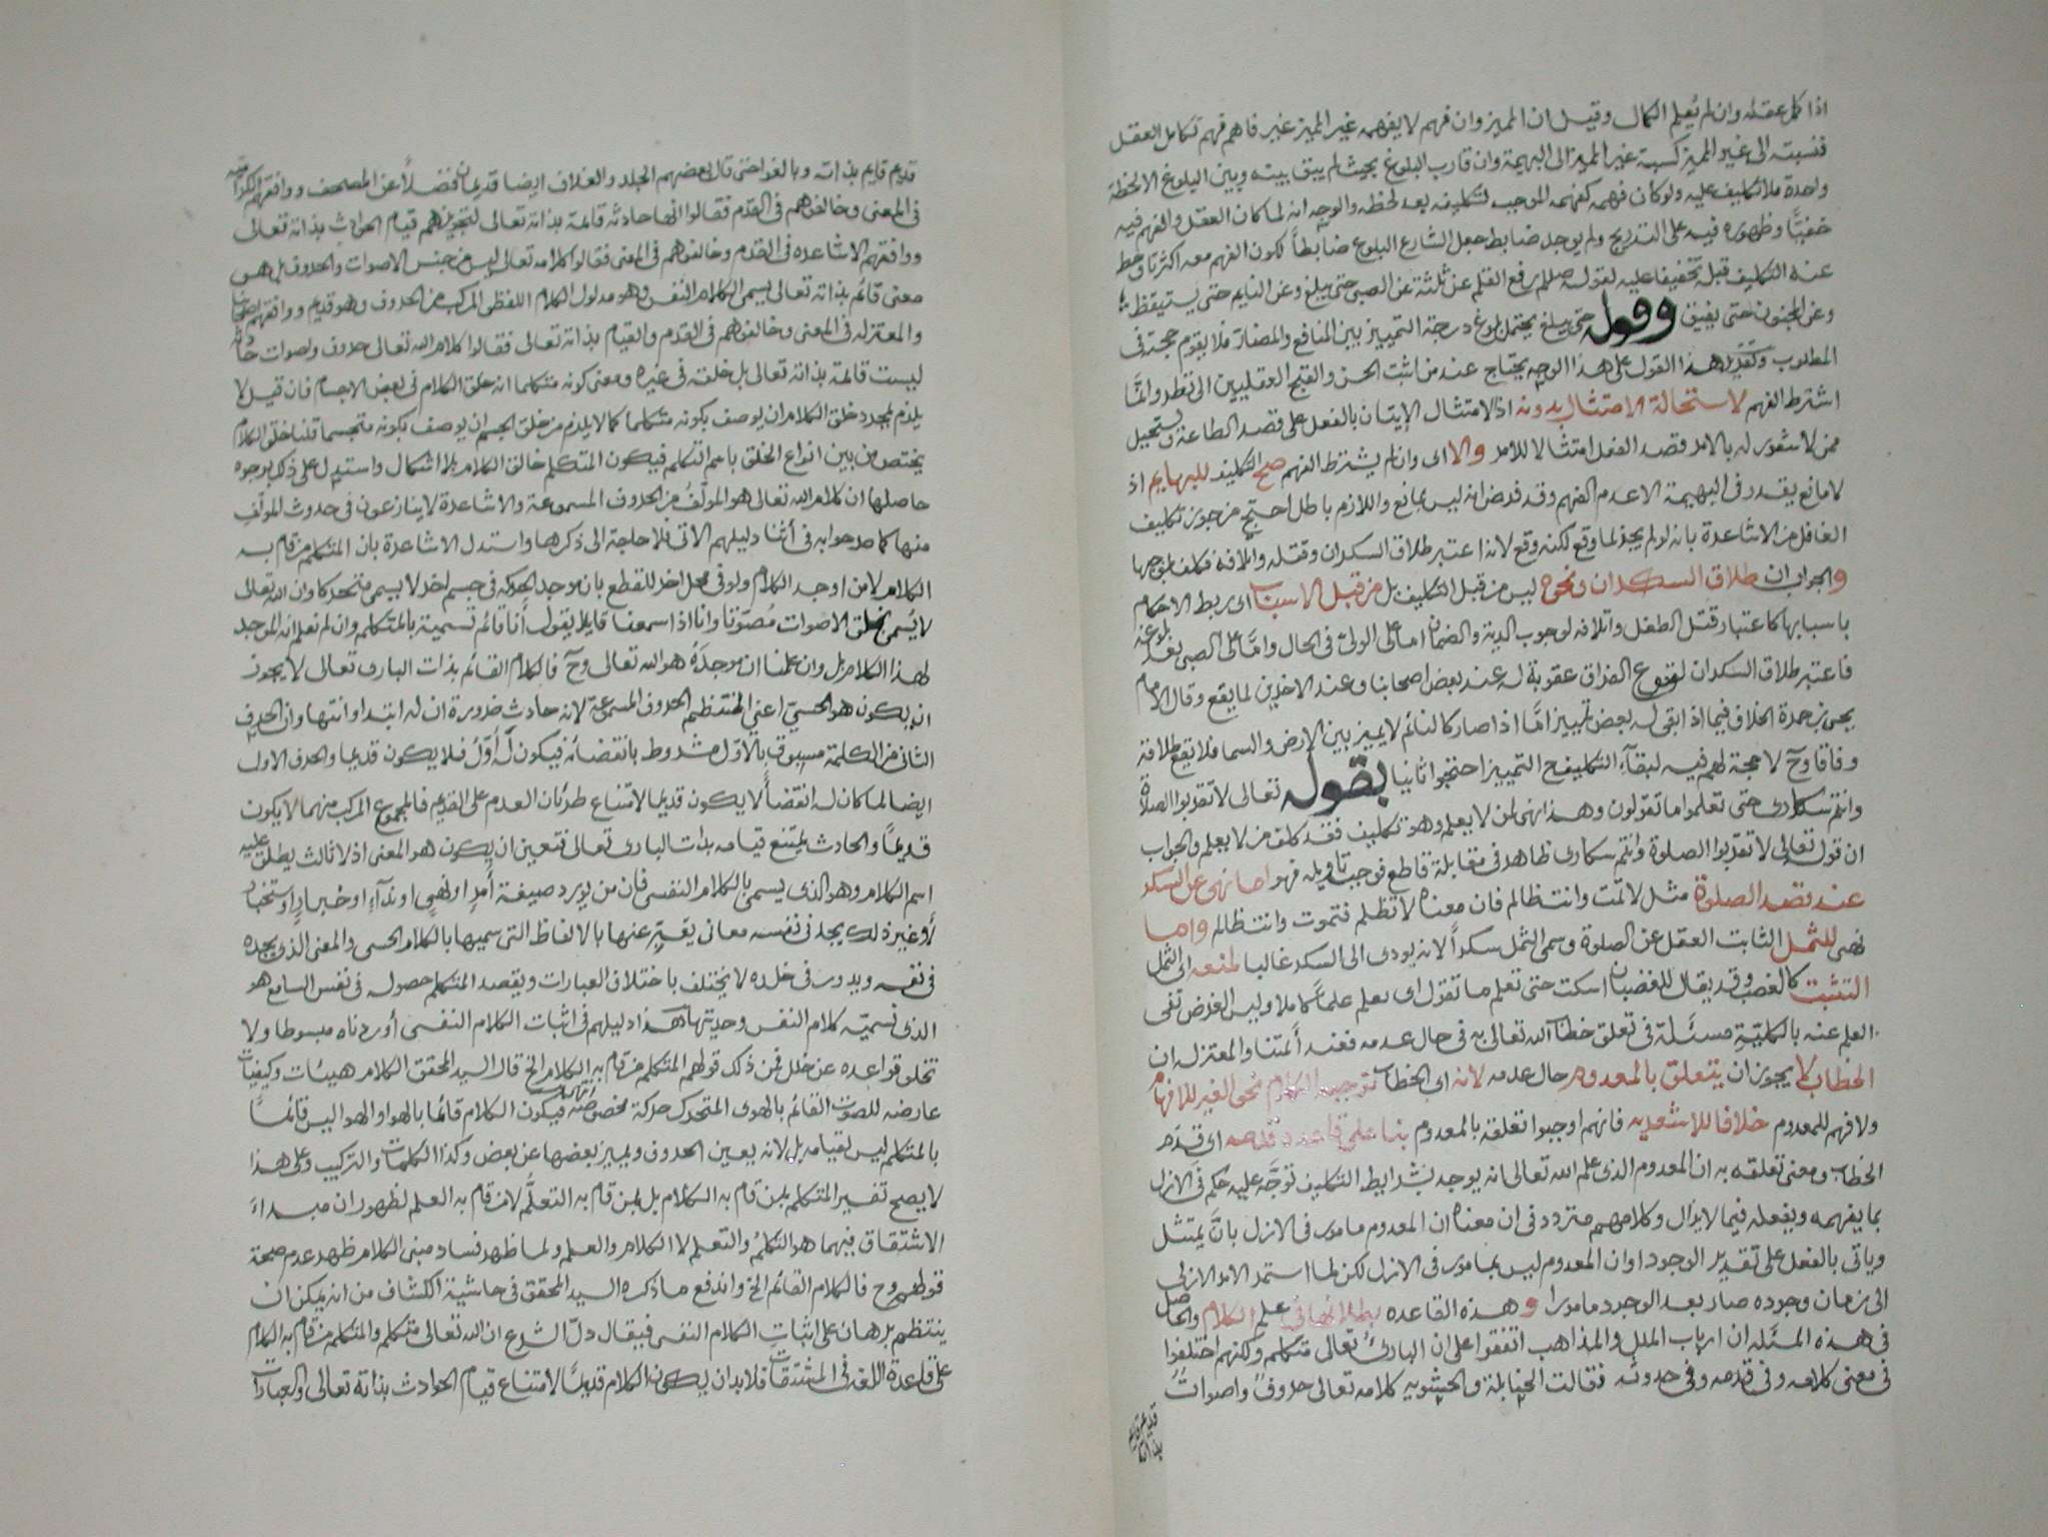 اذا كمل عقله وان لم يُعلم الكمال وقيل ان المميز وان فهم لا يفهمه غير المميز غير فاهم فهم تكامل العقل
فنسبته الى غير المميز كنسبة غير المميز الى البهيمة وان قارب البلوغ بحيث لم يبق بينه وبين البلوغ الا لحظة
واحدة فلا تكليف عليه ولو كان فهمه كفهمه الموجب لتكليفه بعد لحظة والوجه انه لما كان العقل والفهم فيه
خفيًّا وظهوره فيه على التدريج ولم يوجد ضابط جعل الشارع البلوغ ضابطًا لكون الفهم معه اكثريًّا وحط
عنه التكليف قبله تخفيفا عليه لقوله صللم رفع القلم عن ثلثة عن الصبى حتى يبلغ وعن النايم حتى يستيقظ
وعن المجنون حتى يفيق وقوله حتى يبلغ يحتمل بلوغ درجة التمييز بين المنافع والمضار فلا يقوم حجة فى
المطلوب وتقدير هذا القول على هذا الوجه يحتاج عند من اثبت الحسن والقبح العقليين الى نظر وانما
اشترط الفهم لاستحالة الامتثال بدونه اذ الامتثال الاتيان بالفعل على قصد الطاعة ويستحيل
ممن لا شعور له بالامر قصد الفعل امتثالا للامر والا اى وان لم يشترط الفهم صح التكليف للبهايم اذ
لا مانع يقدر فى البهيمة الا عدم الفهم وقد فرض انه ليس بمانع واللازم باطل احتج من جوز تكليف
الغافل من الاشاعرة بانه لو لم يجز لما وقع لكنه وقع لانه اعتبر طلاق السكران وقتله واتلافه فكلف بموجبها
والجواب ان طلاق السكران ونحوه ليس من قبل التكليف بل من قبل الاسباب اى ربط الاحكام
باسبابها كاعتبار قتل الطفل واتلافه لوجوب الدية والضمان اما على الولى فى الحال واما على الصبى بعد بلوغه
فاعتبر طلاق السكران لوقوع الفراق عقوبة له عند بعض اصحابنا وعند الاخرين لما يقع وقال الامام
يحيى بن حمزة الخلاف فيما اذا بقى له بعض تمييز امّا اذا صار كالنائم لا يميز بين الارض والسما فلا يقع طلاقه
وفاقا وح لا حجة لهم فيه لبقاء التكليف ح التمييز احتجوا ثانيا بقوله تعالى لا تقربوا الصلاة
وانتم سكارى حتى تعلموا ما تقولون وهذا نهى لمن لا يعلم وهو تكليف فقد كلف من لا يعلم والجواب
ان قوله تعالى لا تقربوا الصلوة وانتم سكارى ظاهر فى مقابلة قاطع فوجب تاويله فهو اما نهى عن السكر
عند قصد الصلوة مثل لا تمت وانت ظالم فان معناه لا تظلم فتموت وانت ظالم واما
نهى للثمل الثابت العقل عن الصلوة وسمى الثمل سكراً لانه يودى الى السكر غالبا لمنعه اى الثمل
التثبت كالغضب وقد يقال للغضبان اسكت حتى تعلم ما تقول اى تعلم علمًا كاملا وليس الغرض نفى
العلم عنه بالكليّة مسئلة فى تعلق خطاب الله تعالى به فى حال عدمه فعند أئمتنا والمعتزله ان
الخطاب لا يجوز ان يتعلق بالمعدوم حال عدمه لانه اى الخطاب توجيه الكلام نحو الغير للافهام
ولا فهم للمعدوم خلافا للاشعريه فانهم اوجبوا تعلقه بالمعدوم بنا على قاعدة قدمه اى قدم
الخطاب ومعنى تعلقه به ان المعدوم الذى علم الله تعالى انه يوجد بشرايط التكليف توجّه عليه حكم فى الازل
بما يفهمه ويفعله فيما لا يزال وكلامهم متردد فى ان معناه ان المعدوم مامور فى الازل بان يمتثل
وياتى بالفعل على تقدير الوجود او ان المعدوم ليس بمامور فى الازل لكن لما استمر الامر الازلى
الى زمان وجوده صار بعد الوجود مامورا وهذه القاعده بطلانها فى علم الكلام والحاصل
فى هذه المسئله ان ارباب الملل والمذاهب اتفقوا على ان البارئ تعالى متكلم ولكنهم اختلفوا
فى معنى كلامه وفى قدمه وفى حدوثه فقالت الحنابلة والحشويه كلامه تعالى حروفٌ واصواتٌ
قديم قايم بذاته
قديم قايم بذاته وبالغوا حتى قال بعضهم الجلد والغلاف ايضا قديمان فضلاً عن المصحف ووافقهم الكراميه
فى المعنى وخالفوهم فى القدم فقالوا انها حادثه قائمة بذاته تعالى لتجويزهم قيام الحوادث بذاته تعالى
ووافقهم الاشاعره فى القدم وخالفوهم فى المعنى فقالوا كلامه تعالى ليس من جنس الاصوات والحروف بل هو
معنى قائم بذاته تعالى يسمى الكلام النفسى وهو مدلول الكلام اللفظى المركب من الحروف وهو قديم ووافقهم اصحابنا
والمعتزله فى المعنى وخالفوهم فى القدم والقيام بذاته تعالى فقالوا كلام الله تعالى حروف واصوات حادثه
ليست قائمة بذاته تعالى بل خلقه فى غيره ومعنى كونه متكلما انه خلق الكلام فى بعض الاجسام فان قيل لا
يلزم بمجرد خلق الكلام ان يوصف بكونه متكلما كما لا يلزم من خلق الجسم ان يوصف بكونه متجسما قلنا خلق الكلام
يختص من بين انواع الخلق باسم التكلم فيكون المتكلم خالق الكلام بلا اشكال واستدل على ذلك بوجوه
حاصلها ان كلام الله تعالى هو المؤلّف من الحروف المسموعة والاشاعرة لا ينازعون فى حدوث المؤلّف
منها كما صرحوا به فى أثنا دليلهم الاتى فلا حاجة الى ذكرها واستدل الاشاعرة بان المتكلم من قام به
الكلام لا من اوجد الكلام ولو فى محل اخر للقطع بان موجد الحركه فى جسم اخر لا يسمى متحركا وان الله تعالى
لا يُسمى بخلق الاصوات مُصوّتا وانا اذا سمعنا قايلا يقول أنا قائم نسميه بالمتكلم وان لم نعلم انه الموجد
لهذا الكلام بل وان علمنا ان موجدَهُ هو الله تعالى وح فالكلام القائم بذات البارى تعالى لا يجوز
ان يكون هو الحسىّ اعنى المنتظم الحروف المسموعة لانه حادث ضرورة ان له ابتدا وانتها وان الحرف
الثانى من الكلمة مسبوق بالاوّل مشروط بانقضائه فيكون لَه أَوّلُ فلا يكون قديما والحرف الاول
ايضا لما كان له انقضاً لا يكون قديما لامتناع طريان العدم على القديم فالمجموع المركب منهما لا يكون
قديمًا والحادث يمتنع قيامه بذات البارى تعالى فتعين ان يكون هو المعنى اذ لا ثالث يطلق عليه
اسم الكلام وهو الذى يسمى بالكلام النفسى فان من يورد صيغة أَمرٍ او نهىٍ او ندآءٍ او خبارٍ او استخبار
أو غير ذلك يجد فى نفسه معانى يعبِّر عنها بالالفاظ التى نسميها بالكلام الحسى والمعنى الذى يجده
فى نفسه ويدور فى خلده لا يختلف باختلاف العبارات ويقصد المتكلم حصوله فى نفس السامع هو
الذى نسميّه كلام النفس وحديثها هذا دليلهم فى اثبات الكلام النفسى أوردناه مبسوطا ولا
تخلو قواعده عن خلل فمن ذلك قولهم المتكلم من قام به الكلام الخ قال السيد المحقق الكلام هيئات وكيفيات
عارضه للصوت القائم بالهوى المتحرك حركة مخصوصة فيكون الكلام قائما بالهوا والهوا ليس قائماً
بالمتكلم ليس لقيامه بل لانه يعين الحروف ويميز بعضها عن بعض وكذا الكلمات والتركيب وعلى هذا
لا يصح تفسير المتكلم بمن قام به الكلام بل بمن قام به التكلُّم لا من قام به العلم لظهور ان مبداءَ
الاشتقاق فيهما هو التكلم والتعلم لا الكلام والعلم ولما ظهر فساد مبنى الكلام ظهر عدم صحة
قولهم وح فالكلام القائم الخ واندفع ما ذكره السيد المحقق فى حاشية الكشاف من انه يمكن ان
ينتظم برهان على اثبات الكلام النفسى فيقال دلّ الشرع ان الله تعالى متكلم والمتكلم من قام به الكلام
على قاعدة اللغه فى المشتقات فلا بد ان يكون الكلام قديمًا لامتناع قيام الحوادث بذاته تعالى والعبارات